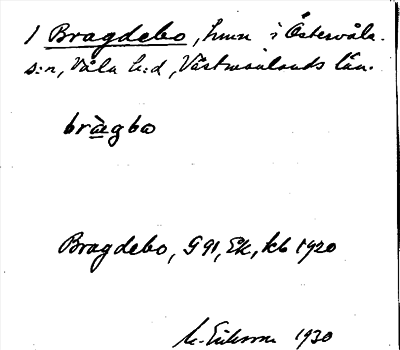 1 Bragdebo, hmn i Östervåla
s:n, Våla h:d, Västmanlands län.
bràgbω
Bragdebo, G 91, Ek, kb 1920
M. Eriksson 1930